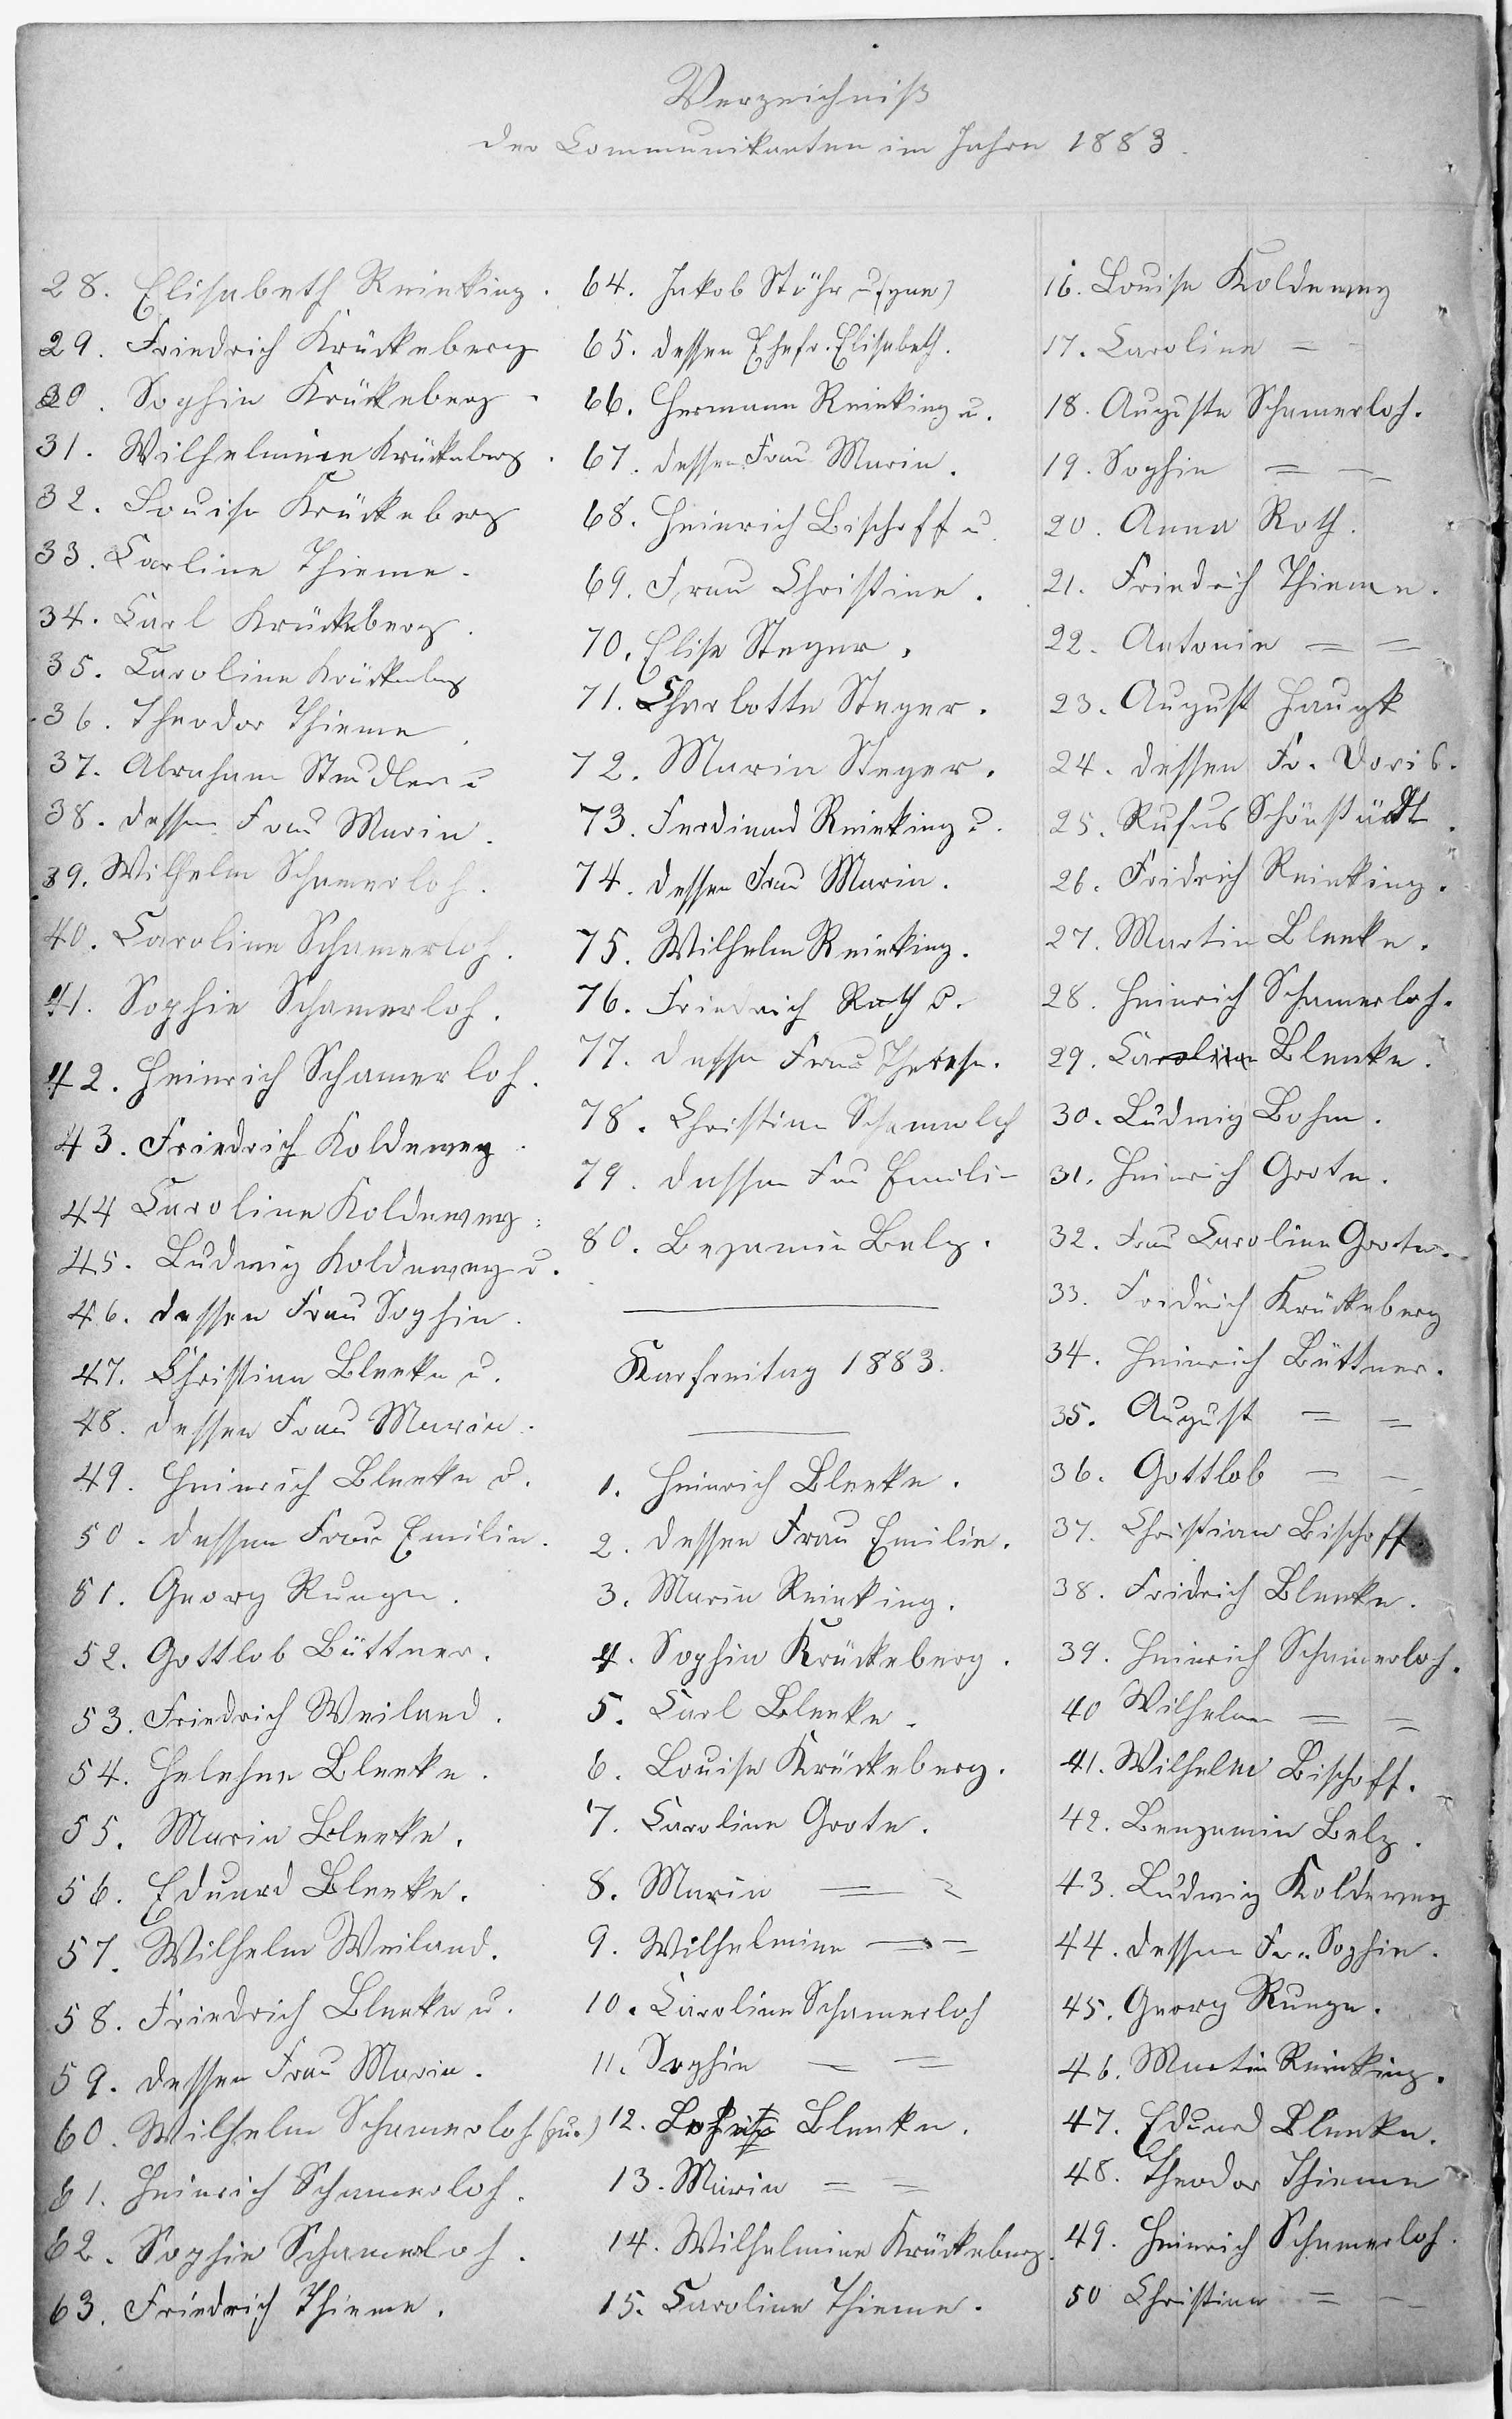 Verzeichniß
der Communikanten im Jahre 1883.
28. Elisabeth Reinking.
29. Friedrich Krückeberg
30. Sophie Krückeberg.
31. Wilhelmine Krückeberg.
32. Louise Krückeberg
33. Carline Thieme.
34. Carl Krückeberg.
35. Caroline Krückeberg
36. Theodor Thieme.
37. Abraham Studler u
38. dessen Frau Marie.
39. Wilhelm Schamerloh.
40. Caroline Schamerloh.
41. Sophie Schamerloh.
42. Heinrich Schamerloh.
43. Friedrich Koldewey.
44 Caroline Koldewey.
45. Ludwig Koldewey u.
46. dessen Frau Sophie.
47. Christian Bleeke u.
48. dessen Frau Marie.
49. Heinrich Bleeke u.
50. dessen Frau Emilie.
51. Georg Runge.
52. Gottlob Büttner.
53. Friedrich Weiland.
54. Helehne Bleeke.
55. Marie Bleeke.
56. Eduard Bleeke.
57. Wilhelm Weiland.
58. Friedrich Bleeke u.
59. dessen Frau Marie.
60. Wilhelm Schamerloh
61. Heinrich Schamerloh.
62. Sophie Schamerloh.
63. Friedrich Thieme.
64. Jakob Stöhr u
65. dessen Ehefr. Elisabeth.
66. Hermann Reinking u.
67. dessen Frau Marie.
68. Heinrich Bischoff u.
69. Frau Christine.
70. Elise Steger.
71. Charlotte Steger.
72. Marie Steger.
73. Ferdinand Reinking u.
74. dessen Frau Marie.
75. Wilhelm Reinking.
76. Friedrich Roth u.
77. dessen Frau Therese.
78. Christian Schamerloh
79. dessen Frau Emilie
80. Bejamin Belz.
Karfreitag 1883.
1. Heinrich Bleeke.
2. dessen Frau Emilie.
3. Marie Reinking.
4. Sophie Krückeberg.
5. Carl Bleeke.
6. Louise Krückeberg.
7. Caroline Grote.
8. Marie = =
9. Wilhelmine = =
10. Caroline Schamerloh
11. Sophie = =
12. Bleeke.
13. Marie = =
14. Wilhelmine Krückeberg.
15. Caroline Thieme.
16. Louise Koldewey
17. Caroline = =
18. Auguste Schamerloh.
19. Sophie = =
20. Anna Roth.
21. Friedrich Thieme.
22. Antonie = =
23. August Haugk
24. dessen Fr. Doris.
25. Rufus Schönstädt.
26. Fridrich Reinking.
27. Martin Bleeke.
28. Heinrich Schamerloh.
29. Caroline Bleeke.
30. Ludwig Bohm.
31. Heinrich Grote.
32. Frau Caroline Grote.
33. Fridrich Krückeberg
34. Heinrich Büttner.
35. August = =
36. Gottlob = =
37. Christian Bischoff
38. Fridrich Bleeke.
39. Heinrich Schamerloh.
40 Wilhelm = =
41. Wilhelm Bischoff.
42. Benjamin Belz.
43. Ludwig Koldewey
44. dessen Fr. Sophie.
45. Georg Runge.
46. Martin Reinking.
47. Eduard Bleeke.
48. Theodor Thieme
49. Heinrich Schamerloh.
50 Christian = =